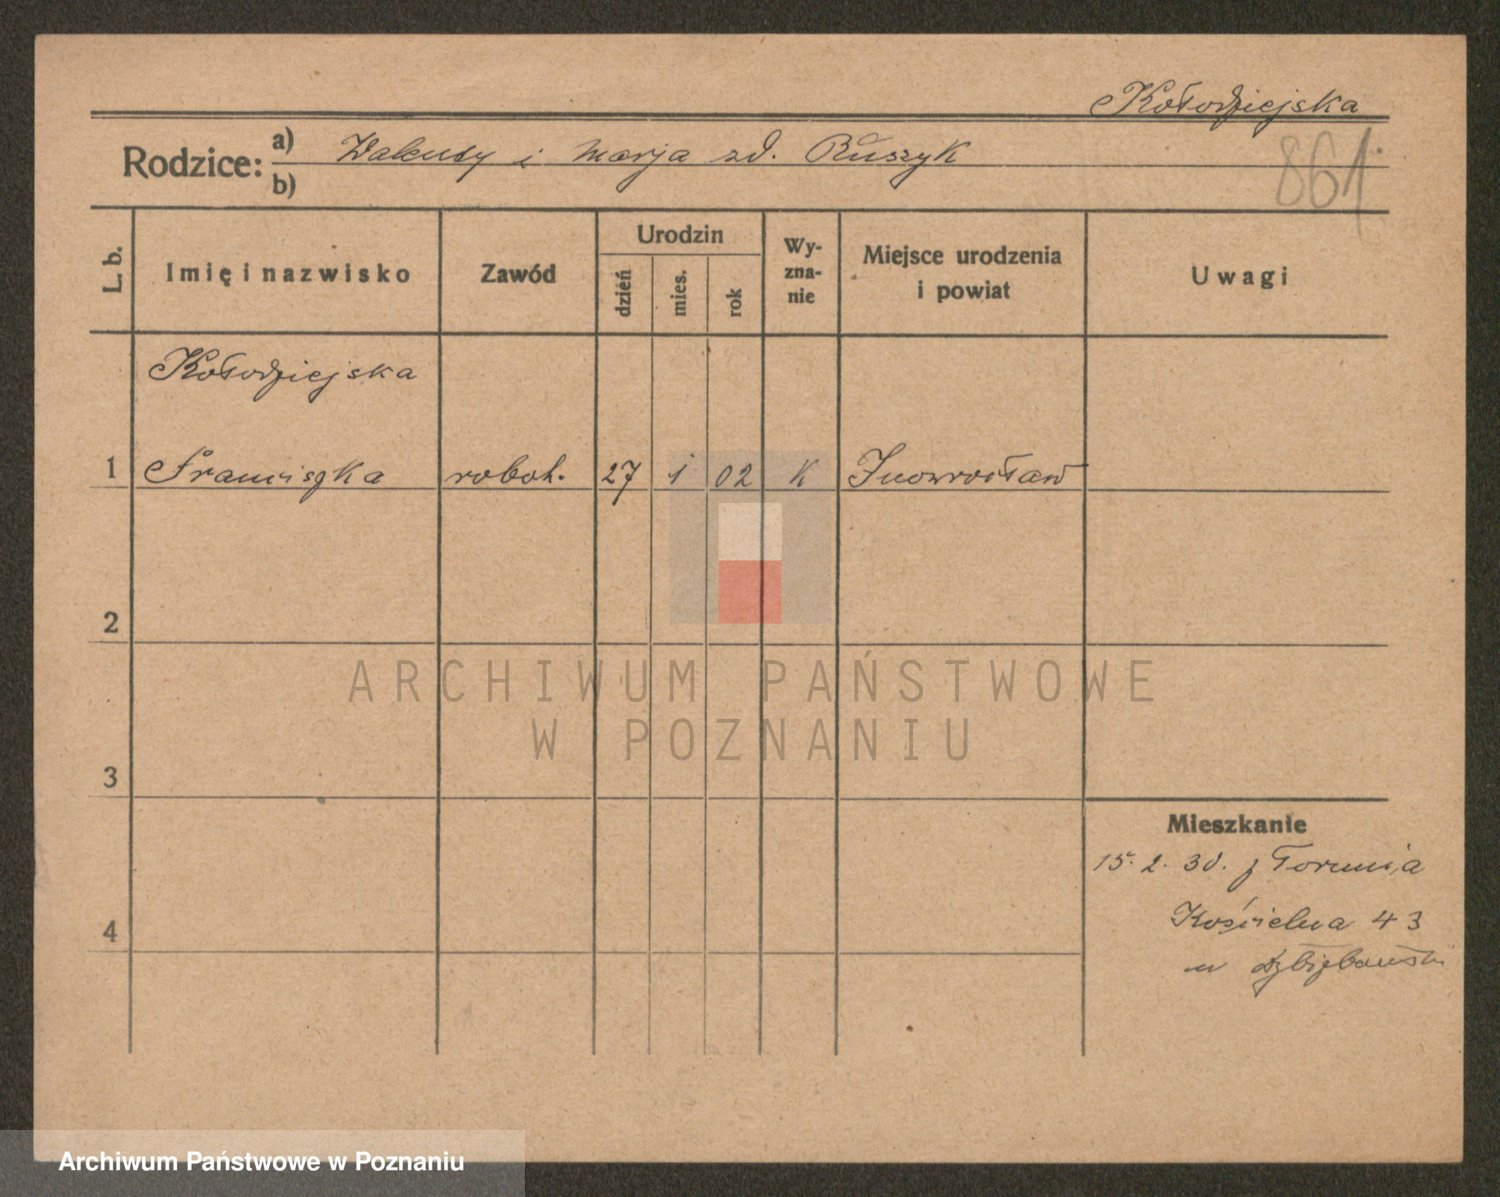 Kołodziejska
Rodzice: a) Walenty i Marja zd. Ruszyk
b)
861.
L. b.
Imię i nazwisko
Zawód
Urodzin
dzień
mies.
rok
Wy-
zna-
nie
Miejsce urodzenia
i powiat
Uwagi
Kołodziejska
1 Franciszka robot. 27 1 02 K Inowrocław
2
ARCHIWUM PAŃSTWOWE
W POZNANIU
3
Mieszkanie
15. 2. 30. z Torunia
Kościelna 43
u
4
Archiwum Państwowe w Poznaniu